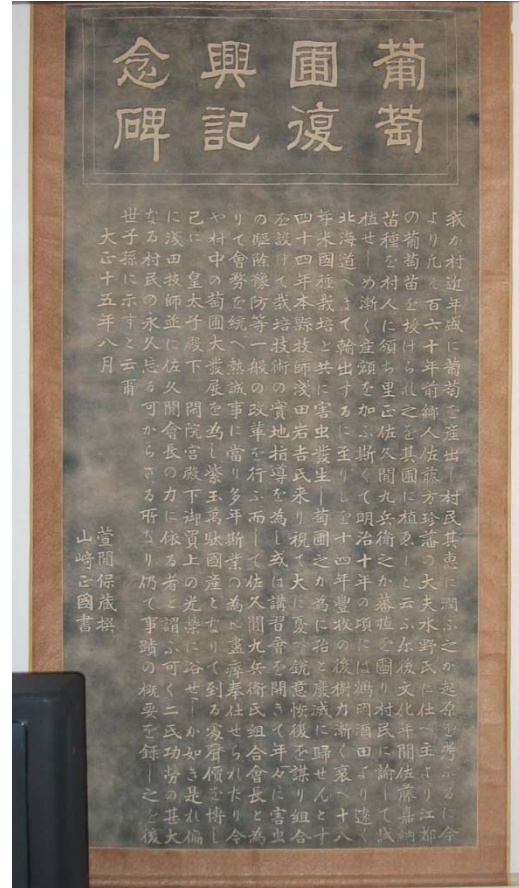 葡萄
圃復
興記
念碑
我か村近年盛に葡萄を産出し村民其恵に潤ふ之か起原を考ふるに今
より凡そ百六十年前郷人佐藤方珍藩の大夫水野氏に仕へ主より江都
の葡萄苗を授けられ之を其圃に植ゑしと云ふ尓後文化年間佐藤嘉納
苗種を村人に頒ち里正佐久間九兵衛之か蕃殖を圖り村民に諭して試
植せしめ漸く産額を加ふ斯くて明治十年の頃には鶴岡酒田より遠く
北海道へまて輸出するに至りしを十四年豊牧の後樹力漸く衰へ十八
年米國種栽培と共に害虫發生し萄圃之か為に殆と廢滅に歸せんとす
四十四年本縣技師浅田岩吉氏来り視て大に憂へ鋭意恢復を謀り組合
を設けて栽培技術の實地指導を為し或は講習會を開きて年々に害虫
の驅除豫防等一般の改革を行ふ而して佐久間九兵衛氏組合會長と為
りて會務を統へ熱誠事に當り多年斯業の為に盡瘁奉仕せられたり今
や村中の萄圃大發展を為し紫玉萬駄國産となりて到る處聲價を博し
已に 皇太子殿下 閑院宮殿下御買上の光榮に浴せしか如き是れ偏
に浅田技師並に佐久間會長の力に依る者と謂ふ可く二氏功勞の甚大
なる村民の永久忘る可からさる所なり仍て事蹟の概要を録し之を後
世子孫に示すと云爾
大正十五年八月
萱間保蔵撰
山﨑正國書